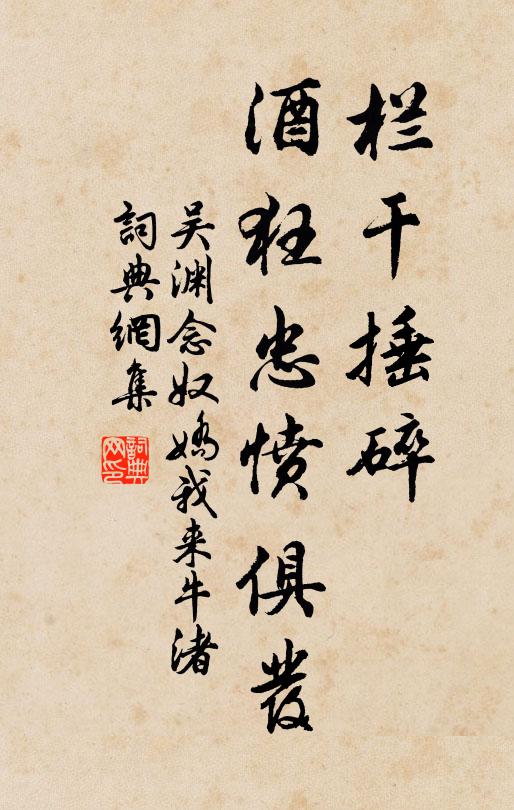 栏干捶碎
酒狂忠愤俱發
吴渊念奴嬌我来牛渚
詞典網集
詞典网印